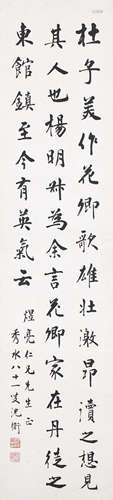 杜子美作花卿歌雄壮激昂讀之想見
其人也楊明叔為余言花卿家在丹徒之
東館鎮至今有英氣云
煜亮仁兄先生正
秀水八十一叟沈衛